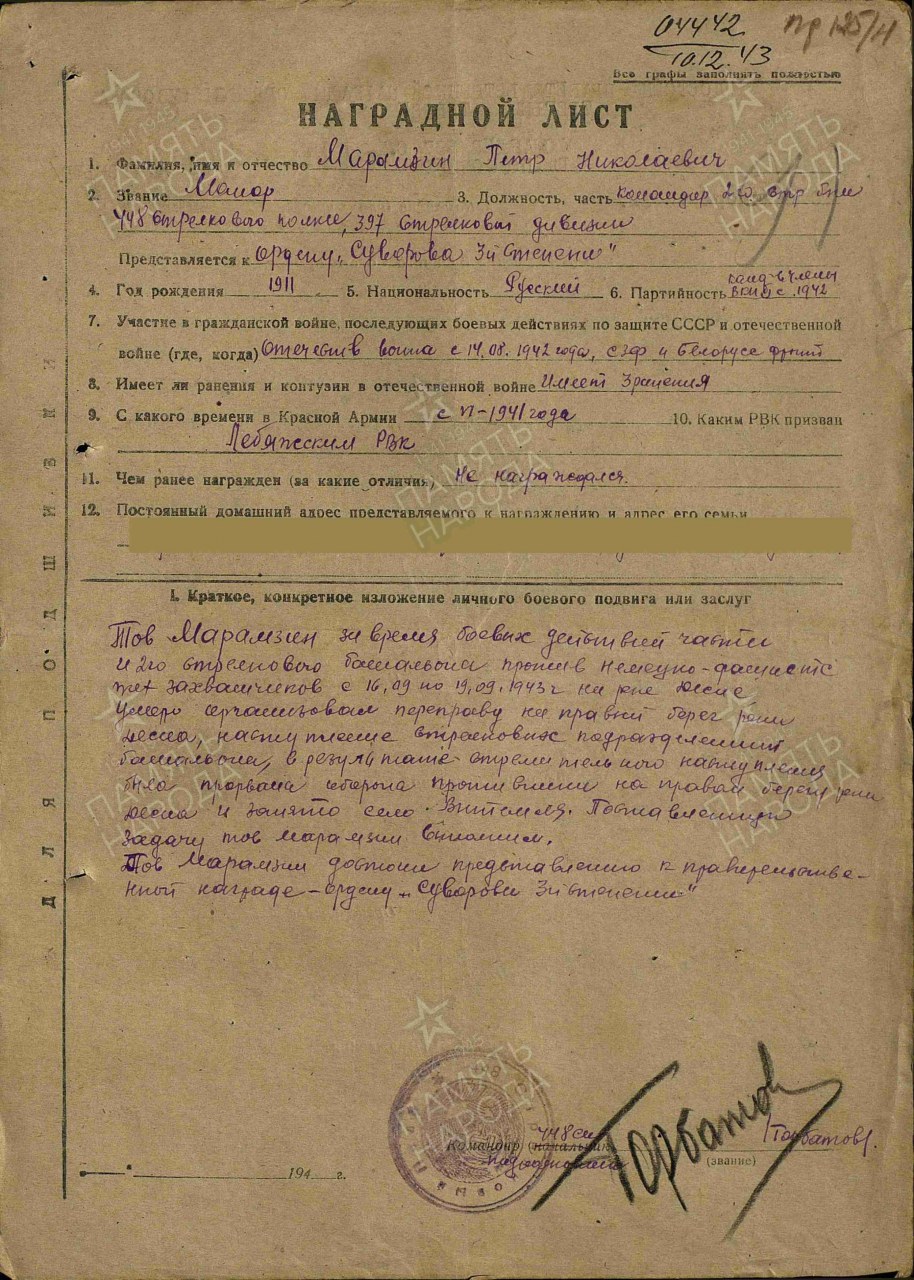 04442
10.12.43
пр 125/н
Все графы заполнять полностью
НАГРАДНОЙ ЛИСТ
1. Фамилия, имя и отчество Марамзин Петр Николаевич
2. Звание Майор 3. Должность, часть командир 2го стр б-на
448 стрелкового полка, 397 стрелковой дивизии
Представляется к ордену „Суворова 3й степени"
4. Год рождения 1911 5. Национальность Русский 6. Партийность канд. в члены
ВКП(б) с 1942
7. Участие в гражданской войне, последующих боевых действиях по защите СССР и отечественной
войне (где, когда) Отечеств война с 14.08.1942 года, СЗФ и Белорусс фронт
8. Имеет ли ранения и контузии в отечественной войне Имеет 3 ранения
9. С какого времени в Красной Армии с 1941 года 10. Каким РВК призван
Лебяжским РВК
11. Чем ранее награжден (за какие отличия) Не награждался.
12. Постоянный домашний адрес представляемого к награждению и адрес его семьи
I. Краткое, конкретное изложение личного боевого подвига или заслуг
Тов Марамзин за время боевых действий части
и 2го стрелкового батальона против немецко-фашистс
ких захватчиков с 16.09 по 19.09.1943г на реке Десне
Умело организовал переправу на правый берег реки
Десна, наступление стрелковых подразделений
батальона, в результате стремительного наступления
была прорвана оборона противника на правом берегу реки
Десна и занято село Витемля. Поставленную
задачу тов Марамзин выполнил.
Тов Марамзин достоин представлению к правительстве-
нной награде - ордену „Суворова 3й степени"
ДЛЯ ПОДШИВКИ
Командир (начальник) 448 сп
подполковник
Горбатов
/Горбатов/.
(звание)
194 г.
ПАМЯТЬ
НАРОДА